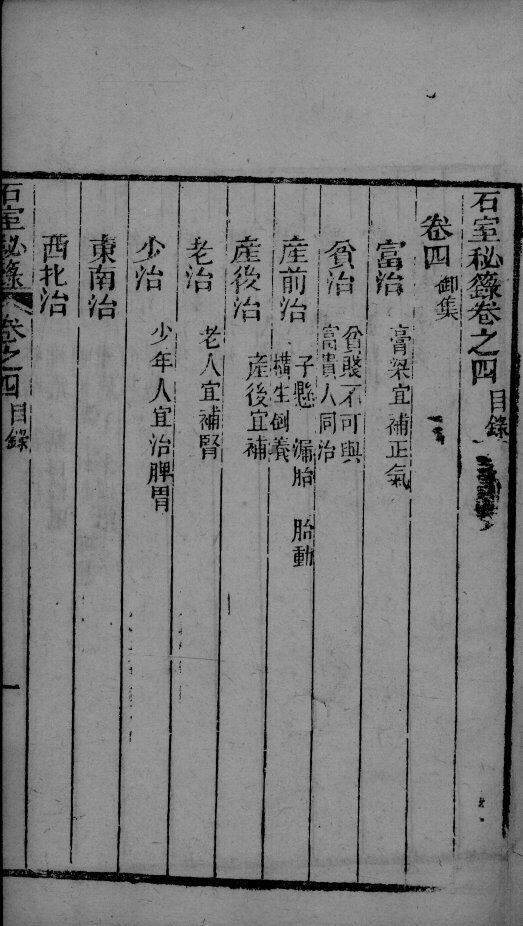 石室秘錄卷之四目錄
卷四 御集
富治 膏粱宜補正氣
貧治 貧賤不可與
富貴人同治
產前治 子懸 漏胎 胎動
橫生倒養
產後治 產後宜補
老治 老人宜補腎
少治 少年人宜治脾胃
東南治
西北治
石室秘錄 卷之四目錄 一